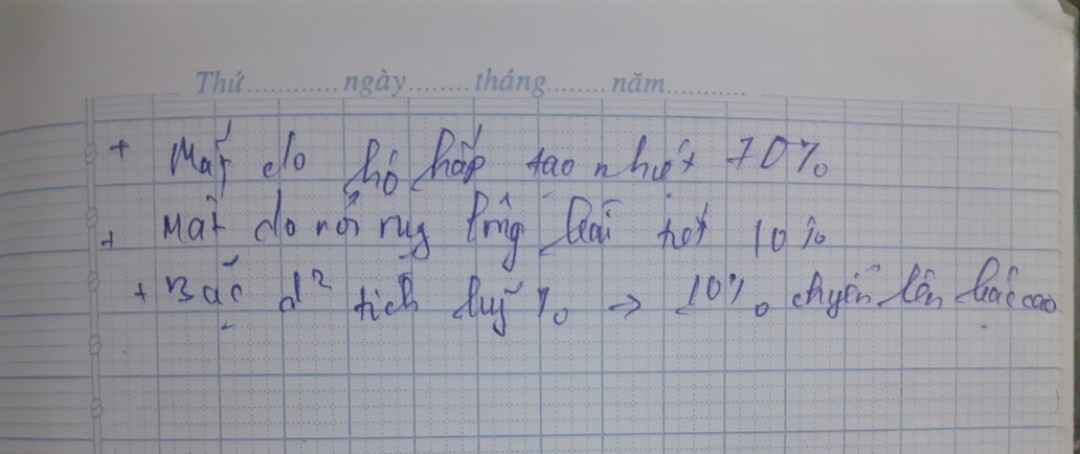 Thứ............ngày........tháng........năm...........
+ Mất do hô hấp tạo nhiệt 70%
+ Mất do rơi rụng lông bài tiết 10%
+ Bậc d² tích luỹ % → 10% chuyển lên bậc cao